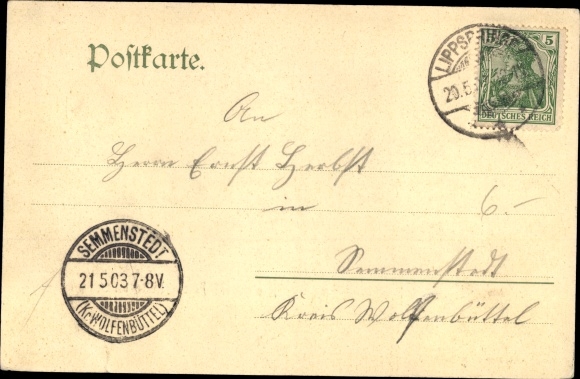 Postkarte.
LIPPSPRINGE
20.5.
5
DEUTSCHES REICH
An
Herrn Ernst Herbst
in 6.-
Semmenstedt
Kreis Wolfenbüttel
SEMMENSTEDT
21 5 03 7-8V.
(Kr. WOLFENBÜTTEL)